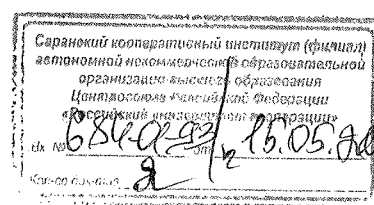 Саранский кооперативный институт (филиал)
автономной некоммерческой образовательной
организации высшего образования
Центросоюза Российской Федерации
«Российский университет кооперации»
Вх. № от 15.05.
Кол-во листов 2